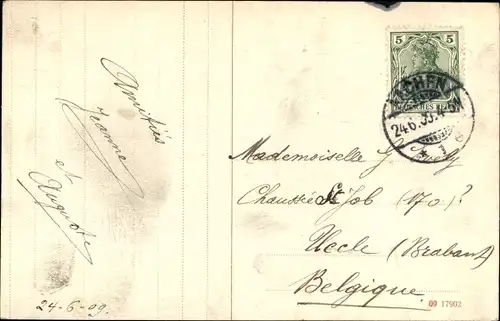 Amitiés
Jeanne
et
Auguste
24-6-09.
5
DEUTSCHES REICH
AACHEN
24.6.
* 1
Mademoiselle
Chaussée St Job (170?)
Uccle (Brabant)
Belgique
09 17902